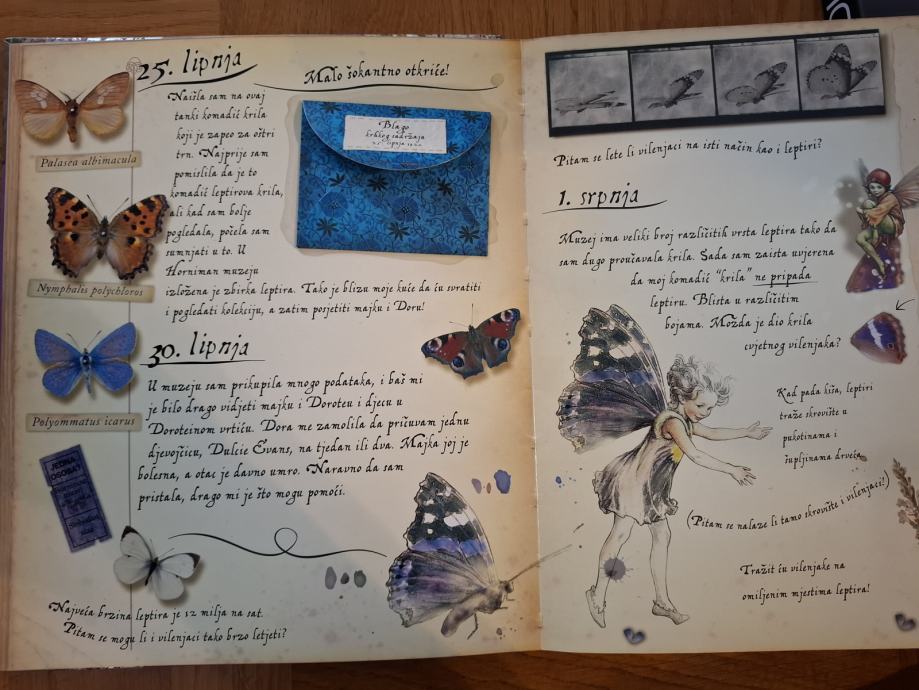 25. lipnja
Malo šokantno otkriće!
Naišla sam na ovaj
tanki komadić krila
koji je zapeo za oštri
trn. Najprije sam
pomislila da je to
komadić leptirova krila,
ali kad sam bolje
pogledala, počela sam
sumnjati u to. U
Horniman muzeju
izložena je zbirka leptira. Tako je blizu moje kuće da ću svratiti
i pogledati kolekciju, a zatim posjetiti majku i Doru!
Blago
krhkog sadržaja
Palasea albimacula
Nymphalis polychloros
Polyommatus icarus
JEDNA
OSOBA
30. lipnja
U muzeju sam prikupila mnogo podataka, i baš mi
je bilo drago vidjeti majku i Doroteu i djecu u
Doroteinom vrtiću. Dora me zamolila da pričuvam jednu
djevojčicu, Dulcie Evans, na tjedan ili dva. Majka joj je
bolesna, a otac je davno umro. Naravno da sam
pristala, drago mi je što mogu pomoći.
Najveća brzina leptira je 12 milja na sat.
Pitam se mogu li i vilenjaci tako brzo letjeti?
Pitam se lete li vilenjaci na isti način kao i leptiri?
1. srpnja
Muzej ima veliki broj različitih vrsta leptira tako da
sam dugo proučavala krila. Sada sam zaista uvjerena
da moj komadić "krila" ne pripada
leptiru. Blista u različitim
bojama. Možda je dio krila
cvjetnog vilenjaka?
Kad pada kiša, leptiri
traže skrovište u
pukotinama i
šupljinama drveća.
(Pitam se nalaze li tamo skrovište i vilenjaci!)
Tražit ću vilenjake na
omiljenim mjestima leptira!